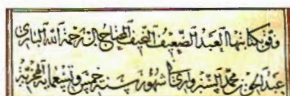 وفق بكتابتها العبد الضعيف النحيف المحتاج الى رحمة الله الباري
بن محمد السبزواري شهور سنة خمس وتسعماية الهجرية